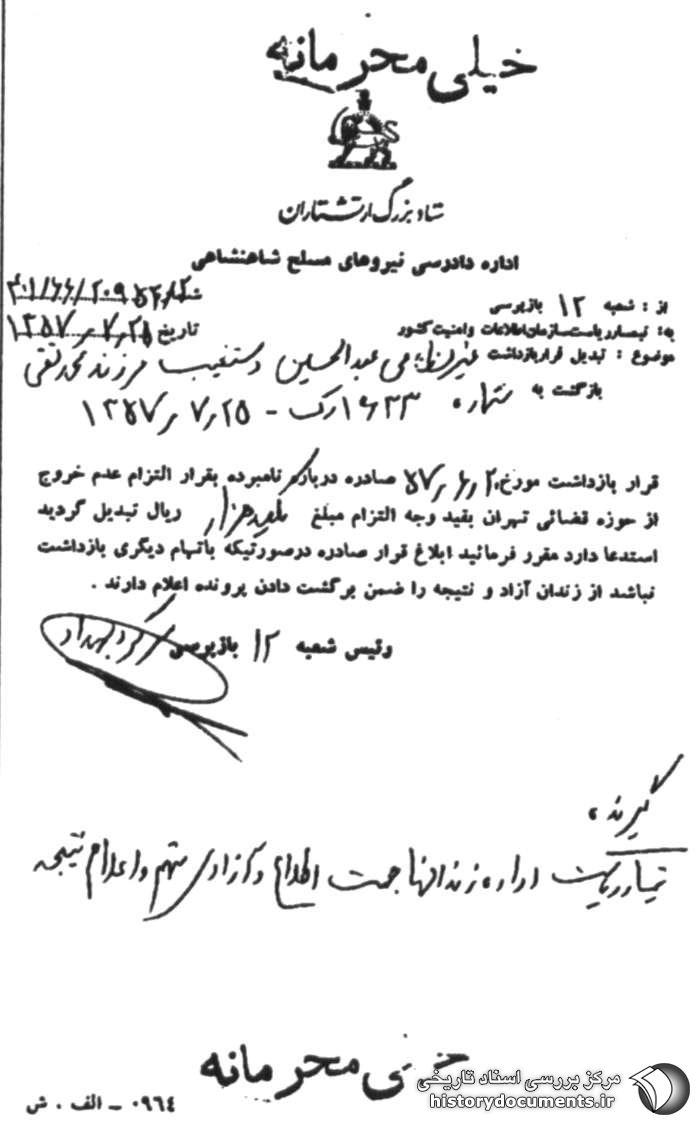 خیلی محرمانه
ستاد بزرگ ارتشتاران
اداره دادرسی نیروهای مسلح شاهنشاهی
از : شعبه ۱۲ بازپرسی
به: تیمسار ریاست سازمان اطلاعات و امنیت کشور
تاریخ ۱۳۵۷٫۷٫۲۵
موضوع : تبدیل قرار بازداشت غیرنظامی عبدالحسین دستغیب فرزند محمدتقی
بازگشت به شماره ۱۶۳۳ رک - ۱۳۵۷٫۷٫۲۵
قرار بازداشت مورخ ۵۷٫۶٫۲ صادره درباره نامبرده بقرار التزام عدم خروج
از حوزه قضائی تهران بقید وجه التزام مبلغ ریال تبدیل گردید
استدعا دارد مقرر فرمائید ابلاغ قرار صادره درصورتیکه باتهام دیگری بازداشت
نباشد از زندان آزاد و نتیجه را ضمن برگشت دادن پرونده اعلام دارند .
رئیس شعبه ۱۲ بازپرسی
گیرنده ،
تیمسار ریاست اداره زندانها جهت اطلاع و آزادی متهم و اعلام نتیجه
خیلی محرمانه
۰۹۶۴ - الف . ش
مرکز بررسی اسناد تاریخی
historydocuments.ir